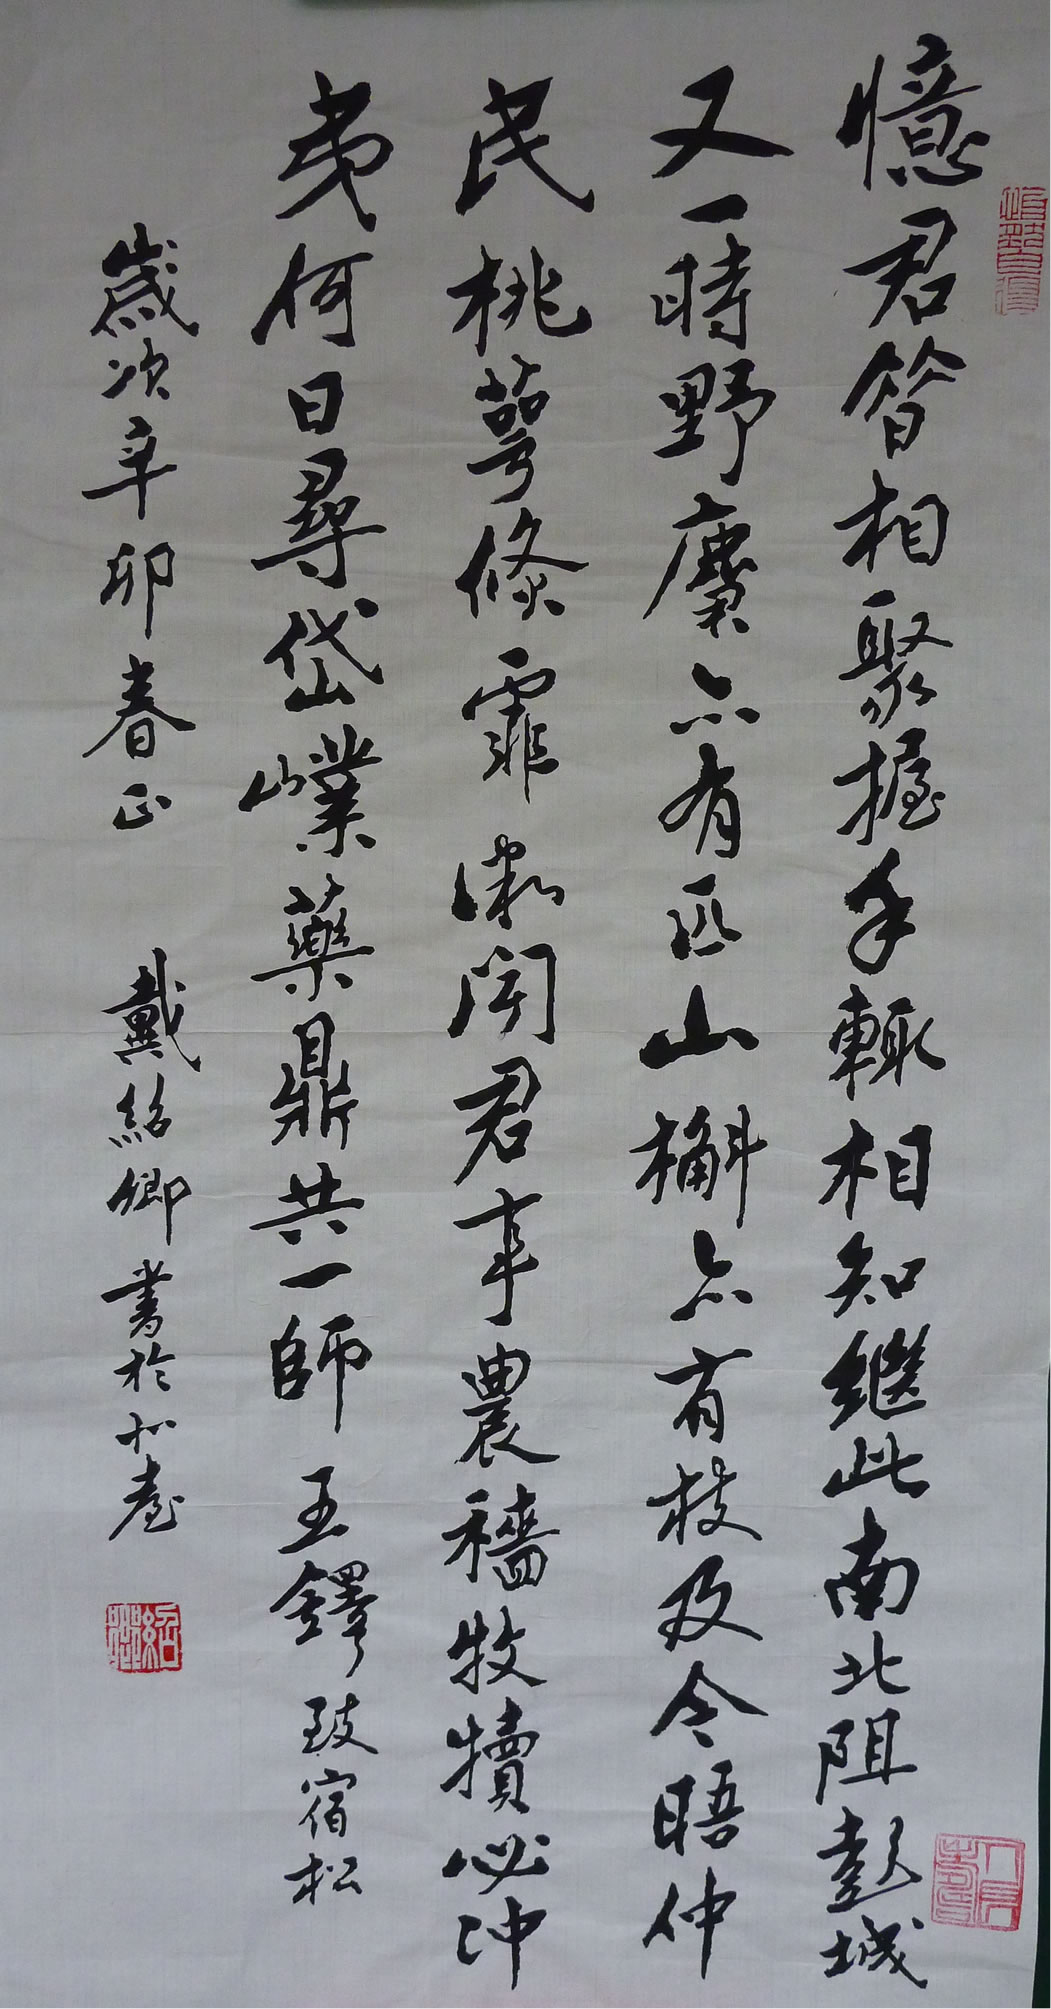 憶君答相聚握手輙相知繼此南北阻彭城
又一時野麋亦有匹山槲亦有枝及今晤仲
民桃萼倏霏微聞君事農穡牧犢必冲
夷何日尋岱嶪藥鼎共一師王鐸致宿松
歲次辛卯春正 戴紹卿書於北臺
紹卿